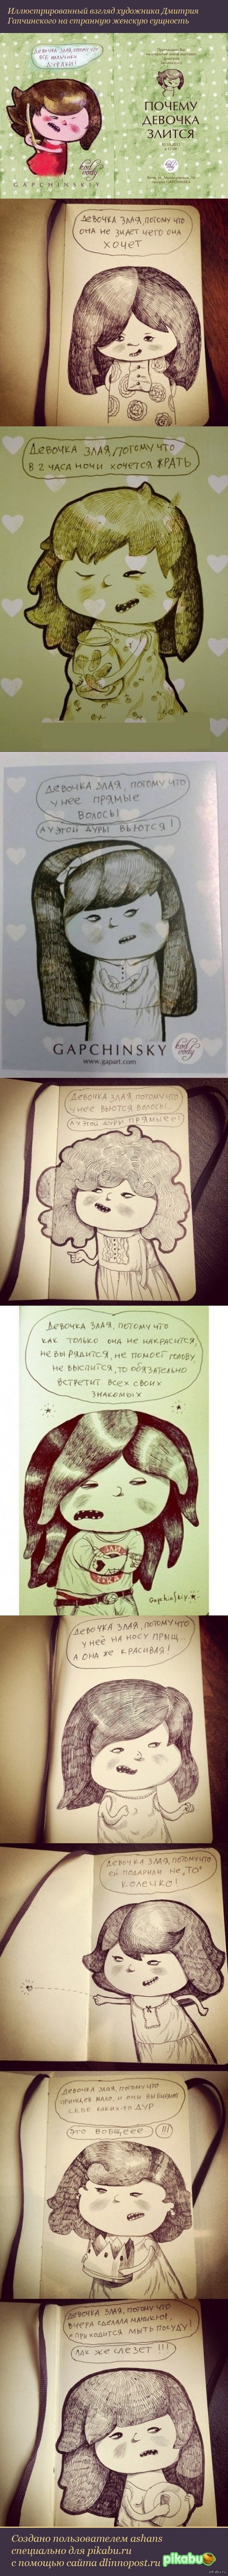 Иллюстрированный взгляд художника Дмитрия
Гапчинского на странную женскую сущность
ДЕВОЧКА ЗЛАЯ, ПОТОМУ ЧТО
ВСЕ МАЛЬЧИКИ
ДУРАКИ!
kod
vody
GAPCHINSKIY
ПОЧЕМУ
ДЕВОЧКА
ЗЛИТСЯ
ДЕВОЧКА ЗЛАЯ, ПОТОМУ ЧТО
ОНА НЕ ЗНАЕТ ЧЕГО ОНА
ХОЧЕТ
ДЕВОЧКА ЗЛАЯ, ПОТОМУ ЧТО
В 2 ЧАСА НОЧИ ХОЧЕТСЯ ЖРАТЬ
ДЕВОЧКА ЗЛАЯ, ПОТОМУ ЧТО
У НЕЕ ПРЯМЫЕ
ВОЛОСЫ
А У ЭТОЙ ДУРЫ ВЬЮТСЯ!
GAPCHINSKY
www.gapart.com
kod
vody
ДЕВОЧКА ЗЛАЯ, ПОТОМУ ЧТО
У НЕЕ ВЬЮТСЯ ВОЛОСЫ,
А У ЭТОЙ ДУРЫ ПРЯМЫЕ!!
ДЕВОЧКА ЗЛАЯ, ПОТОМУ ЧТО
КАК ТОЛЬКО ОНА НЕ НАКРАСИТСЯ,
НЕ ВЫРЯДИТСЯ, НЕ ПОМОЕТ ГОЛОВУ
НЕ ВЫСПИТСЯ, ТО ОБЯЗАТЕЛЬНО
ВСТРЕТИТ ВСЕХ СВОИХ
ЗНАКОМЫХ
Gapchinskiy
ДЕВОЧКА ЗЛАЯ, ПОТОМУ ЧТО
У НЕЁ НА НОСУ ПРЫЩ...
А ОНА ЖЕ КРАСИВАЯ!
ДЕВОЧКА ЗЛАЯ, ПОТОМУ ЧТО
ЕЙ ПОДАРИЛИ НЕ „ТО"
КОЛЕЧКО!
ДЕВОЧКА ЗЛАЯ, ПОТОМУ ЧТО
ПРИНЦЕВ МАЛО, И ОНИ ВЫБИРАЮТ
СЕБЕ КАКИХ-ТО ДУР
ЭТО ВОБЩЕЕЕ !!!
ДЕВОЧКА ЗЛАЯ, ПОТОМУ ЧТО
ВЧЕРА СДЕЛАЛА МАНИКЮР,
А ПРИХОДИТСЯ МЫТЬ ПОСУДУ!
ЛАК ЖЕ СЛЕЗЕТ !!!
Создано пользователем ashans
специально для pikabu.ru
с помощью сайта dlinnopost.ru
pikabu